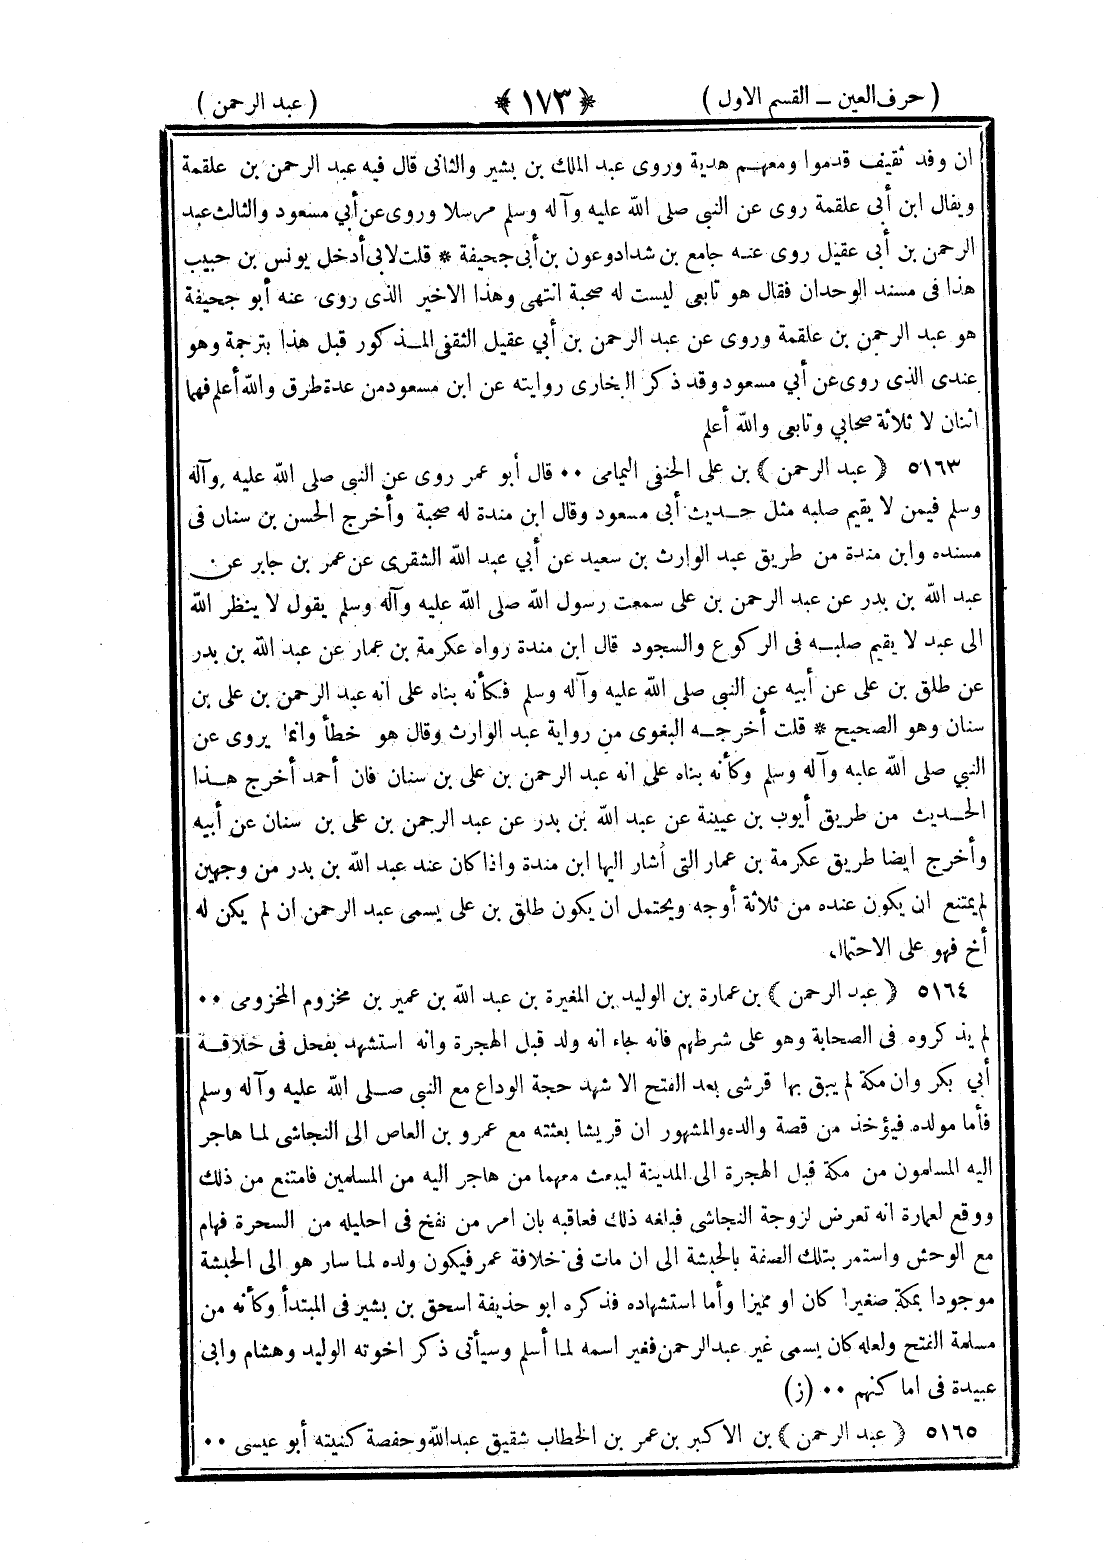 ( حرف العين – القسم الاول )
﴿ ١٧٣ ﴾
( عبد الرحمن )
ان وفد ثقيف قدموا ومعهم هدية وروى عبد الملك بن بشير والثانى قال فيه عبد الرحمن بن علقمة
ويقال ابن أبى علقمة روى عن النبي صلى الله عليه وآله وسلم مرسلا وروى عن أبي مسعود والثالث عبد
الرحمن بن أبى عقيل روى عنه جامع بن شداد وعون بن أبى جحيفة * قلت لابى أدخل يونس بن حبيب
هذا فى مسند الوحدان فقال هو تابعى ليست له صحبة انتهى وهذا الاخير الذى روى عنه أبو جحيفة
هو عبد الرحمن بن علقمة وروى عن عبد الرحمن بن أبي عقيل الثقفى المذكور قبل هذا بترجمة وهو
عندى الذى روى عن أبي مسعود وقد ذكر البخارى روايته عن ابن مسعود من عدة طرق والله أعلم فهما
اثنان لا ثلاثة صحابي وتابعى والله أعلم
٥١٦٣ ﴿ عبد الرحمن ﴾ بن على الحنفى اليمامى ٠٠ قال أبو عمر روى عن النبي صلى الله عليه وآله
وسلم فيمن لا يقيم صلبه مثل حديث أبى مسعود وقال ابن مندة له صحبة وأخرج الحسن بن سنان فى
مسنده وابن مندة من طريق عبد الوارث بن سعيد عن أبي عبد الله الشقرى عن عمر بن جابر عن
عبد الله بن بدر عن عبد الرحمن بن على سمعت رسول الله صلى الله عليه وآله وسلم يقول لا ينظر الله
الى عبد لا يقيم صلبه فى الركوع والسجود قال ابن مندة رواه عكرمة بن عمار عن عبد الله بن بدر
عن طلق بن على عن أبيه عن النبي صلى الله عليه وآله وسلم فكأنه بناه على انه عبد الرحمن بن على بن
سنان وهو الصحيح * قلت أخرجه البغوى من رواية عبد الوارث وقال هو خطأ وانما يروى عن
النبي صلى الله عليه وآله وسلم وكأنه بناه على انه عبد الرحمن بن على بن سنان فان أحمد أخرج هذا
الحديث من طريق أيوب بن عيينة عن عبد الله بن بدر عن عبد الرحمن بن على بن سنان عن أبيه
وأخرج ايضا طريق عكرمة بن عمار التى أشار اليها ابن مندة واذا كان عند عبد الله بن بدر من وجهين
لم يمتنع ان يكون عنده من ثلاثة أوجه ويحتمل ان يكون طلق بن على يسمى عبد الرحمن ان لم يكن له
أخ فهو على الاحتمال
٥١٦٤ ﴿ عبد الرحمن ﴾ بن عمارة بن الوليد بن المغيرة بن عبد الله بن عمير بن مخزوم المخزومى ٠٠
لم يذكروه فى الصحابة وهو على شرطهم فانه جاء انه ولد قبل الهجرة وانه استشهد بفحل فى خلافة
أبي بكر وان مكة لم يبق بها قرشى بعد الفتح الا شهد حجة الوداع مع النبي صلى الله عليه وآله وسلم
فأما مولده فيؤخذ من قصة والده والمشهور ان قريشا بعثته مع عمرو بن العاص الى النجاشى لما هاجر
اليه المسلمون من مكة قبل الهجرة الى المدينة ليبعث معهما من هاجر اليه من المسلمين فامتنع من ذلك
ووقع لعمارة انه تعرض لزوجة النجاشى فبلغه ذلك فعاقبه بان امر من نفخ فى احليله من السحرة فهام
مع الوحش واستمر بتلك الصفة بالحبشة الى ان مات فى خلافة عمر فيكون ولده لما سار هو الى الحبشة
موجودا بمكة صغيرا كان او مميزا وأما استشهاده فذكره ابو حذيفة اسحق بن بشير فى المبتدأ وكأنه من
مسلمة الفتح ولعله كان يسمى غير عبد الرحمن فغير اسمه لما أسلم وسيأتى ذكر اخوته الوليد وهشام وابى
عبيدة فى اماكنهم ٠٠ (ز)
٥١٦٥ ﴿ عبد الرحمن ﴾ بن الاكبر بن عمر بن الخطاب شقيق عبدالله وحفصة كنيته أبو عيسى ٠٠